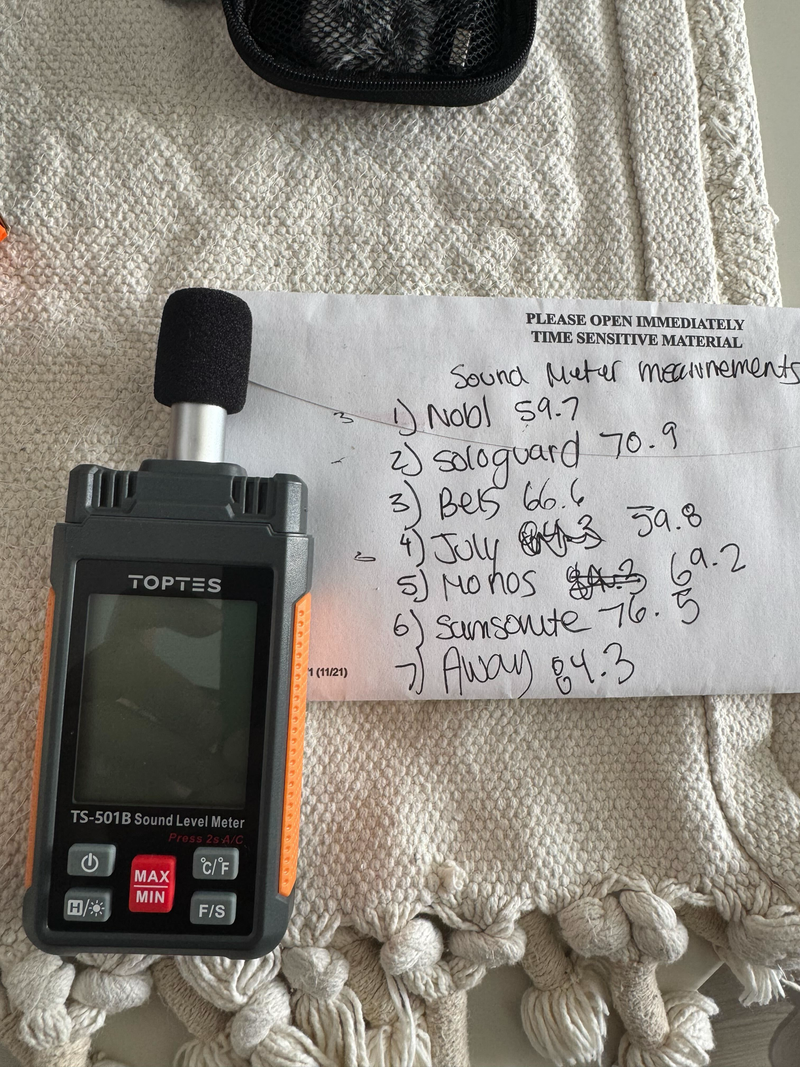 PLEASE OPEN IMMEDIATELY
TIME SENSITIVE MATERIAL
Sound Meter measurements
1) Nobl 59.7
2) sologuard 70.9
3) Beis 66.6
4) July 59.8
5) Monos 69.2
6) Samsonite 76.5
7) Away 64.3
1 (11/21)
TOPTES
TS-501B Sound Level Meter
Press 2s-A/C
°C/°F
MAX
MIN
H/
F/S